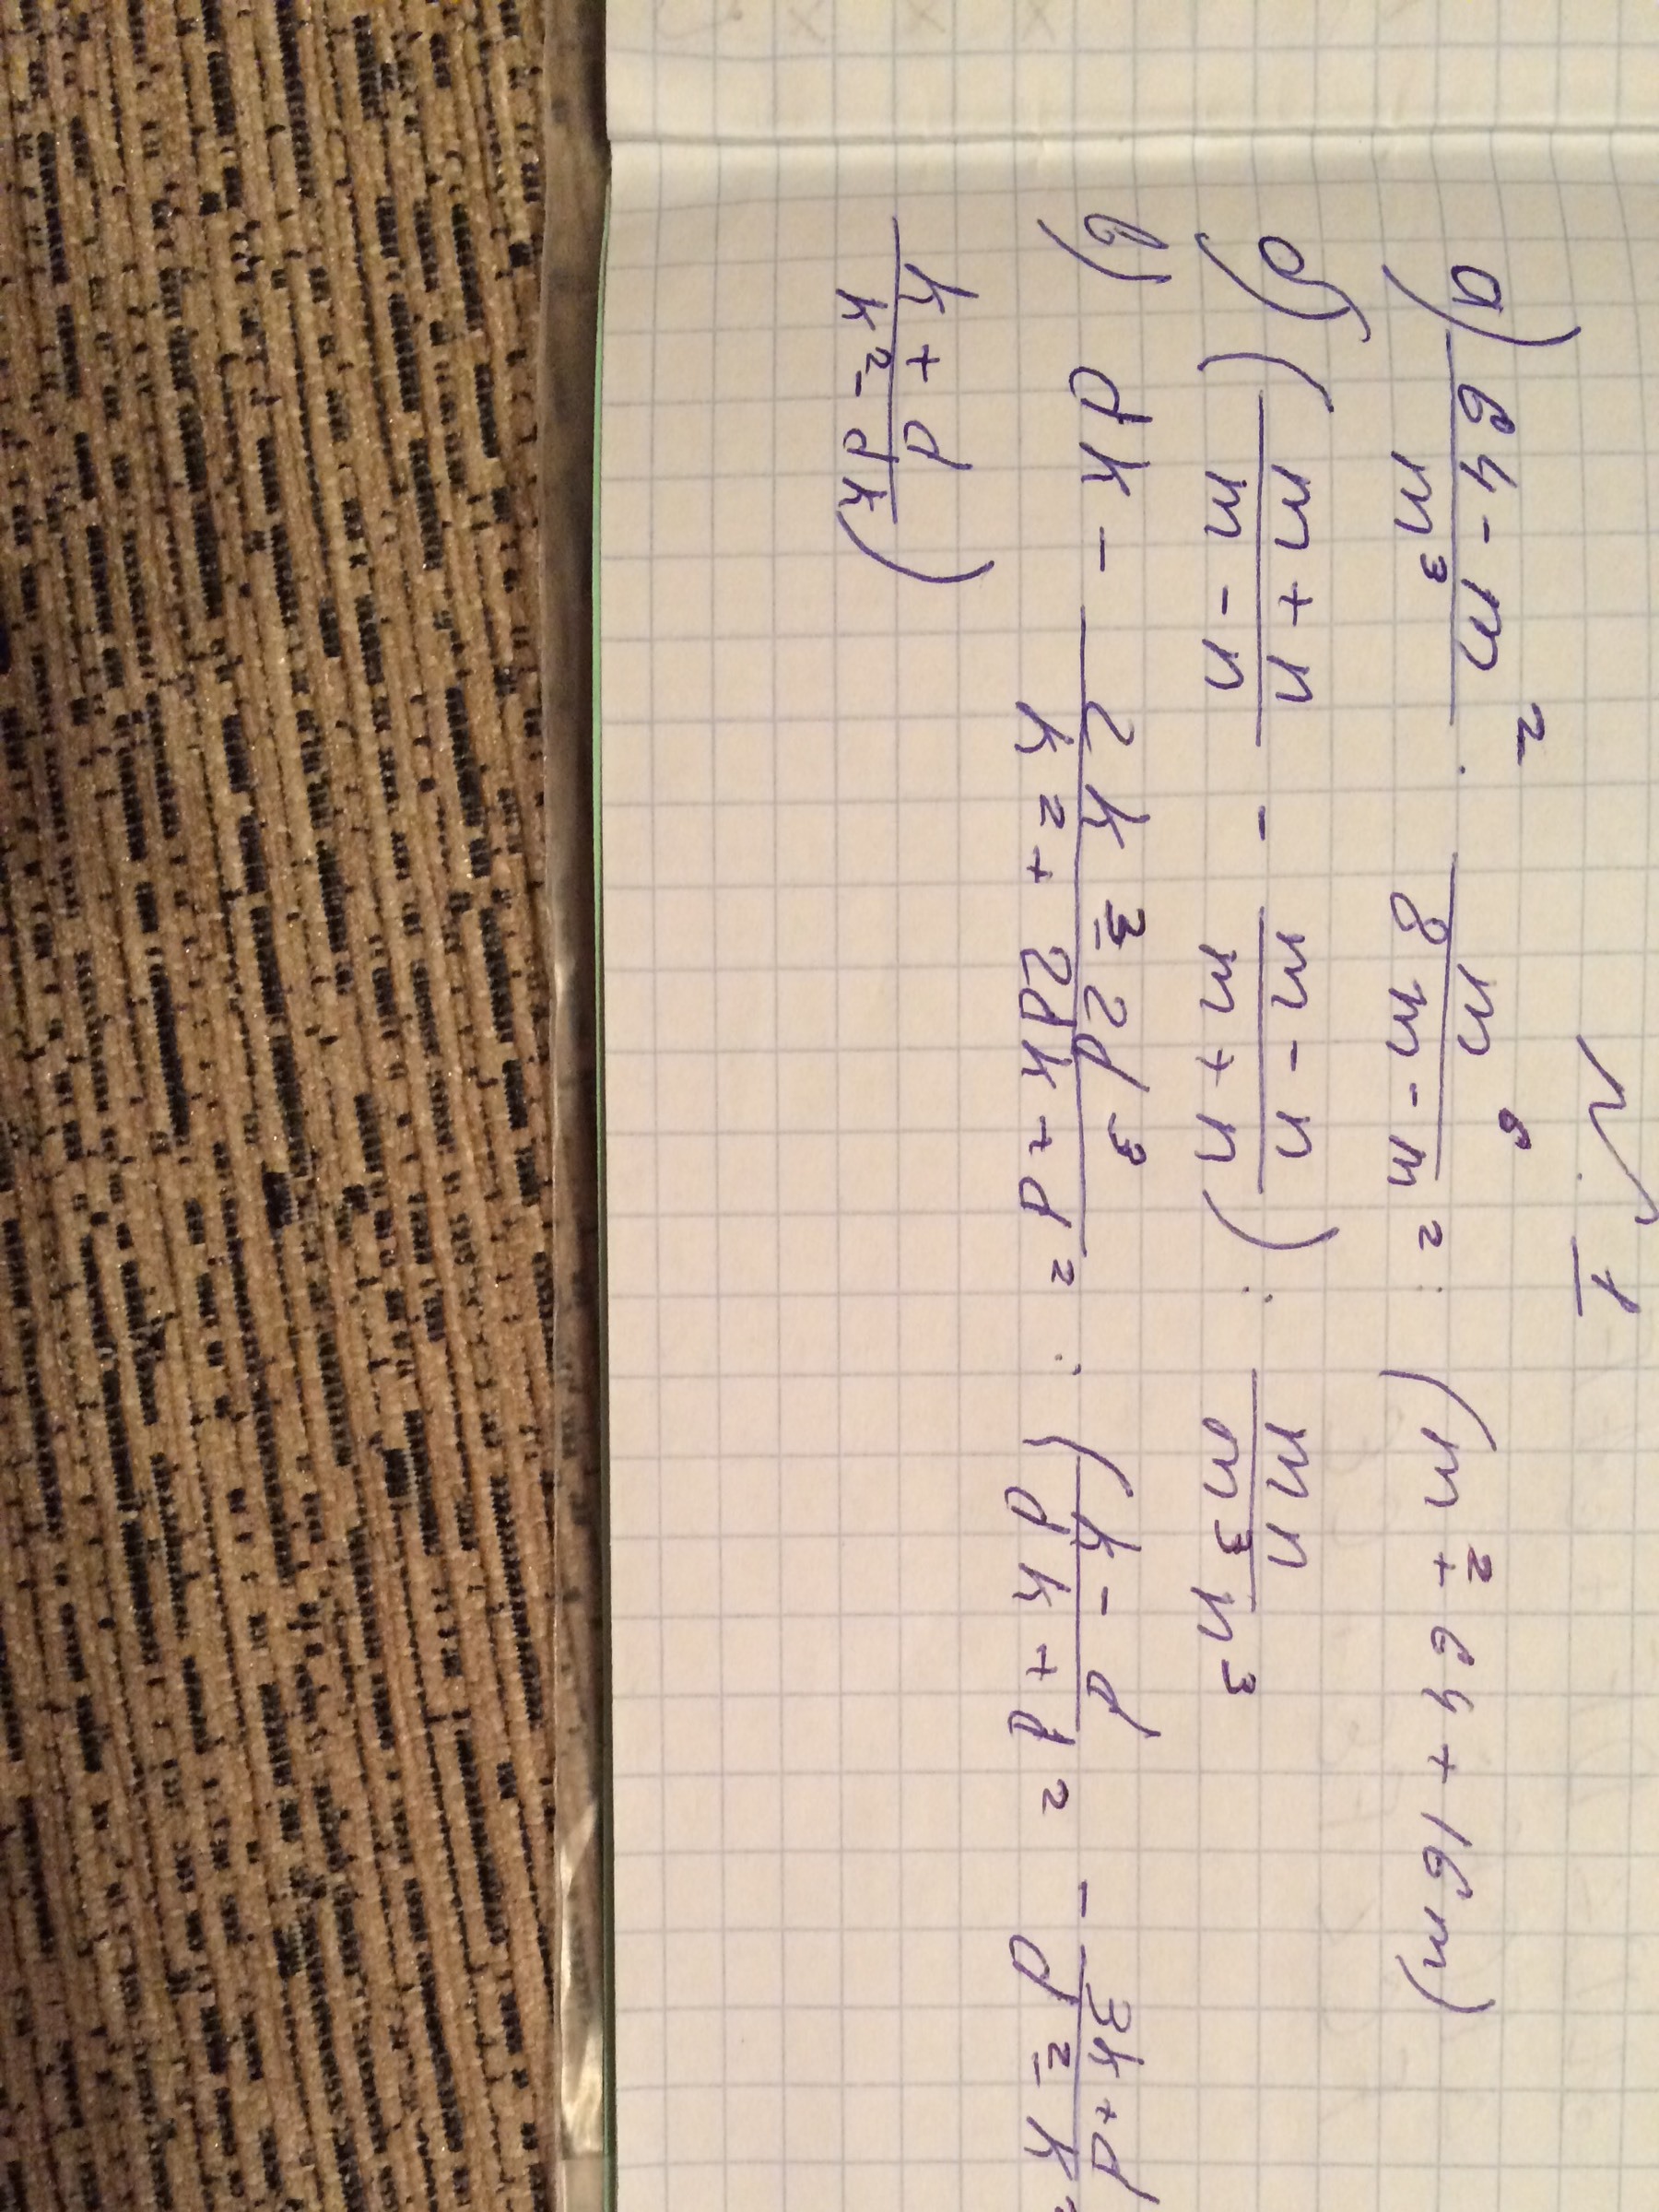 № 1
а) (64 - m²)/m³ · m⁶/(8m - m²) : (m² + 64 + 16m)
б) ((m + n)/(m - n) - (m - n)/(m + n)) : mn/(m³n³)
в) pk - (2k³ 2p³)/(k² + 2pk + p²) : ((k - p)/(pk + p²) - (3k + p)/(p² - k²) -
(k + p)/(k² - pk))